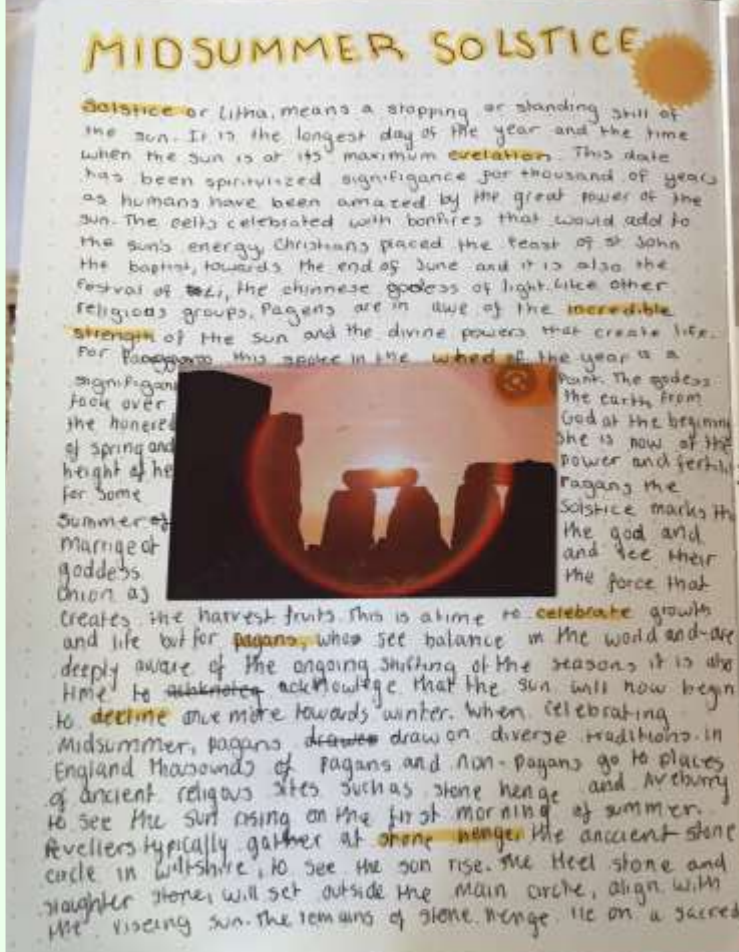 MIDSUMMER SOLSTICE
Solstice or Litha, means a stopping or standing still of
the sun. It is the longest day of the year and the time
when the sun is at its maximum evelation. This date
has been spiritulized signifigance for thousand of years
as humans have been amazed by the great power of the
sun. The celts celebrated with bonfires that would add to
the sun's energy, Christians placed the feast of st John
the baptist, towards the end of June and it is also the
festval of Li, the chinnese godess of light. Like other
religious groups, Pagens are in awe of the incredible
strength of the sun and the divine powers that create life.
For this spoke in the wheel of the year is a
signifigant Point. The godess
took over the earth from
the honered God at the beginning
of spring and she is now at the
height of her power and fertility
For some Pagans the
Summer Solstice marks the
marrige of the god and
goddess and see their
Union as the force that
creates the harvest fruits. This is a time to celebrate growth
and life but for pagans, who see balance in the world and are
deeply aware of the ongoing shifting of the seasons it is also
time to acknowlege that the sun will now begin
to decline once more towards winter. When celebrating
Midsummer, pagans draw on diverse traditions. In
England thousounds of pagans and non-pagans go to places
of ancient religous sites such as stone henge and Aveburry
to see the sun rising on the first morning of summer.
Revellers typically gather at stone henge, the anccient stone
circle in wiltshire, to see the sun rise. The Heel stone and
slaughter stone, will set outside the main circle, align with
the riseing sun. The remains of stone henge lie on a sacred